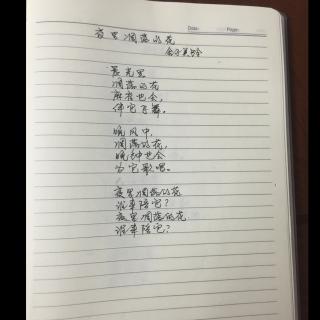 Date: Page:
夜里凋落的花
金子美玲
晨光里
凋落的花
麻雀也会,
伴它飞舞。
晚风中,
凋落的花,
晚钟也会
为它歌唱。
夜里凋落的花
谁来陪它?
夜里凋落的花
谁来陪它?